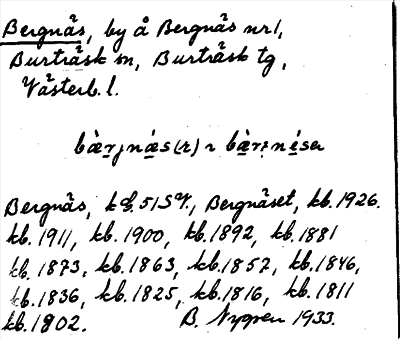 Bergnäs, by å Bergnäs nr 1,
Burträsk sn, Burträsk tg,
Västerb. l.
Bergnäs, Bergnäset, kb. 1926.
kb. 1911, kb. 1900, kb. 1892, kb. 1881
kb. 1873, kb. 1863, kb. 1857, kb. 1846,
kb. 1836, kb. 1825, kb. 1816, kb. 1811
kb. 1802. B. Nygren 1933.